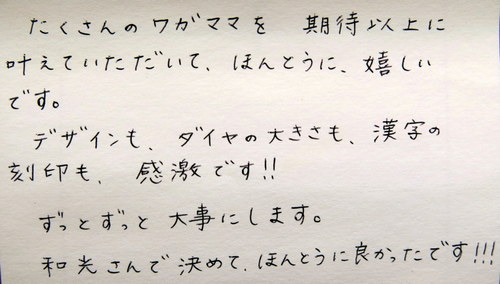 たくさんのワガママを 期待以上に
叶えていただいて、ほんとうに、嬉しい
です。
デザインも、ダイヤの大きさも、漢字の
刻印も、 感激です!!
ずっとずっと 大事にします。
和光さんで決めて、ほんとうに良かったです!!!